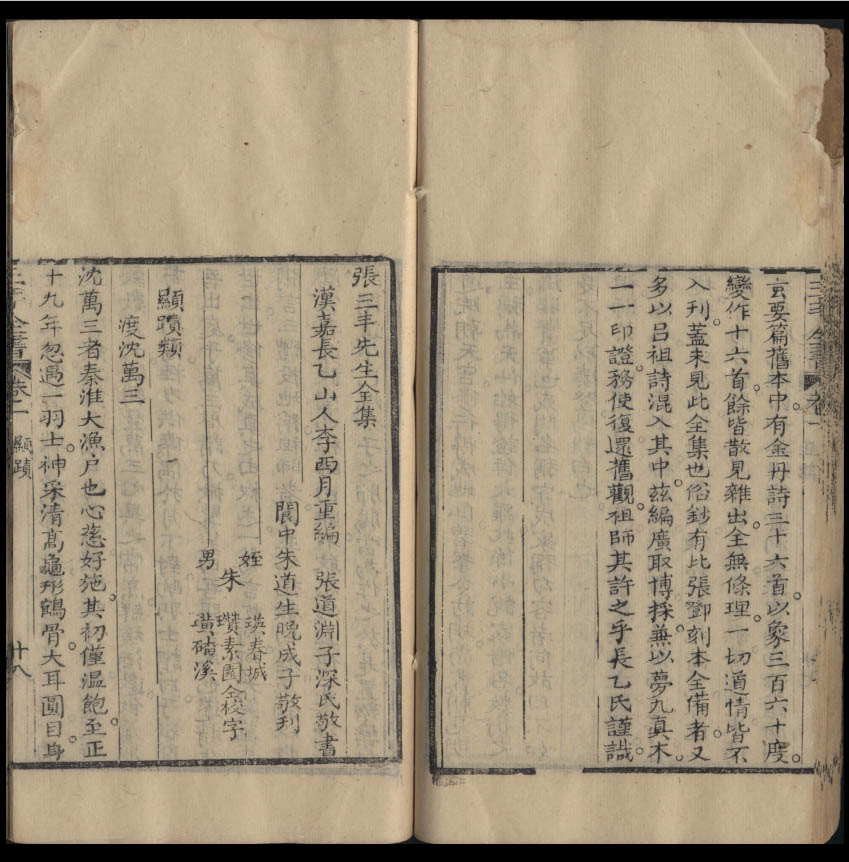 三丰全書 卷一
玄要篇舊本中有金丹詩三十六首。以象三百六十度。
變作十六首。餘皆散見雜出。全無條理。一切道情皆不
入刊。蓋未見此全集也。俗鈔有比張鄧刻本全備者。又
多以呂祖詩混入其中。兹編廣取博採。兼以夢九真木。
一一印證。務使復還舊觀。祖師其許之乎。長乙氏謹識。
張三丰先生全集
漢嘉長乙山人李西月重編 張道淵子深氏敬書
閬中朱道生晚成子敬刊
姪 瑛春城
朱 瓚素園仝校字
男 璜磻溪
顯蹟類
度沈萬三
沈萬三者秦淮大漁户也心慈好施。其初僅温飽。至正
十九年忽遇一羽士。神采清高。龜形鶴骨。大耳圓目。身
三丰全書 卷二 顯蹟 十八